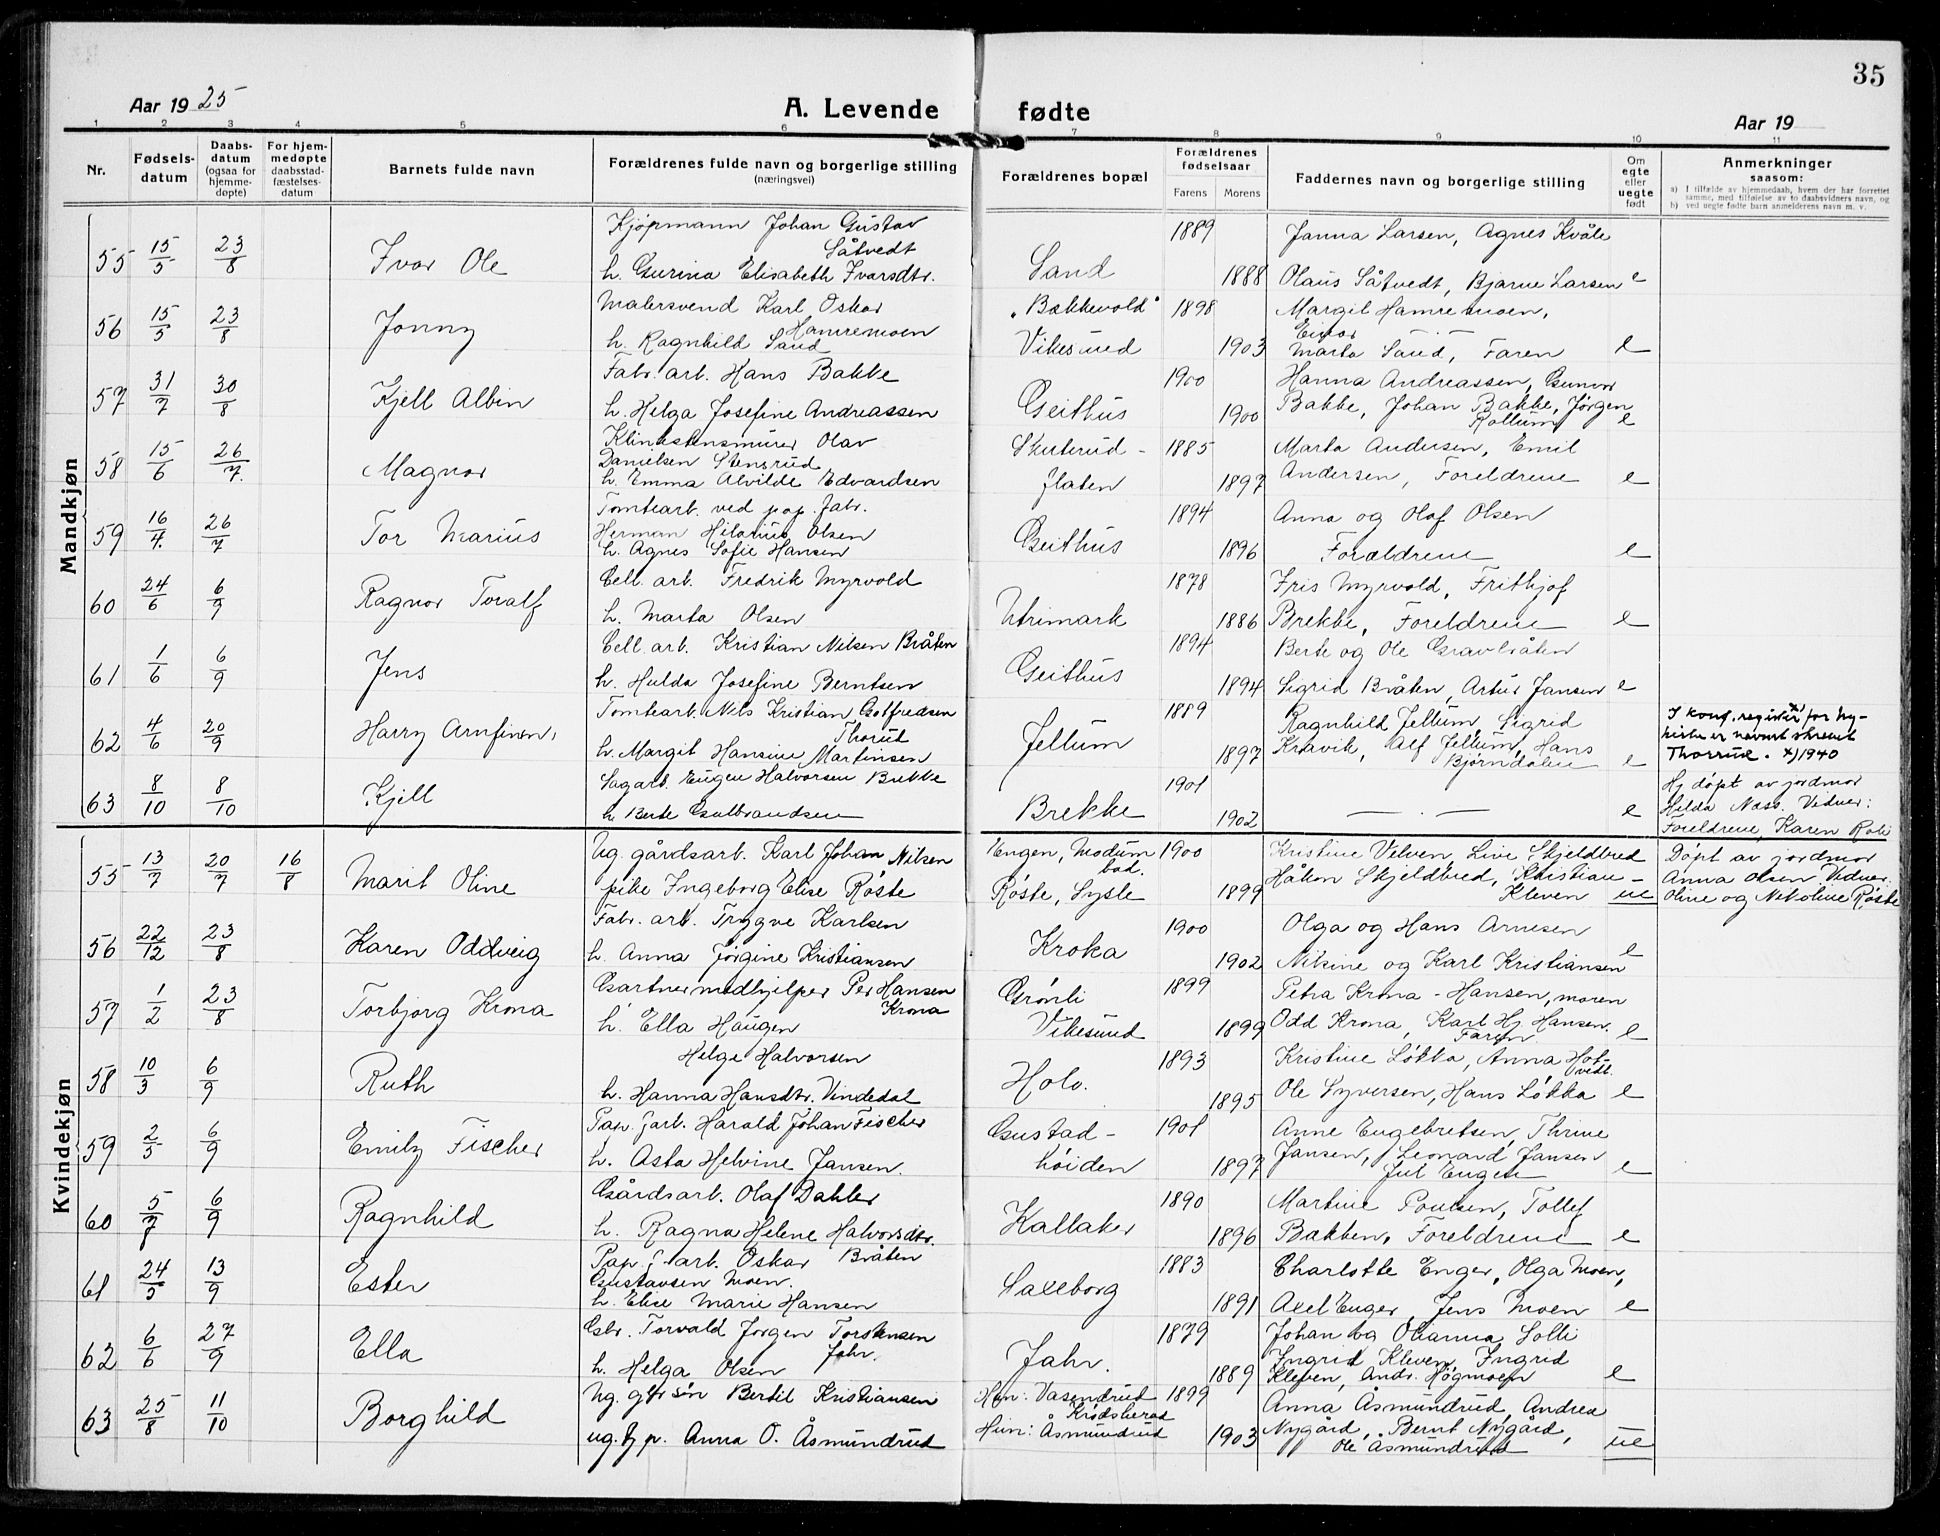 35
Aar 1925
A. Levende fødte
Aar 19
1 2 3 4 5 6 7 8 9 10 11
Nr.
Fødsels-
datum
Daabs-
datum
(ogsaa for
hjemme-
døpte)
For hjem-
medøpte
daabsstad-
fæstelses-
datum
Barnets fulde navn
Forældrenes fulde navn og borgerlige stilling
(næringsvei)
Forældrenes bopæl
Forældrenes
fødselsaar
Farens Morens
Faddernes navn og borgerlige stilling
Om
egte
eller
uegte
født
Anmerkninger
saasom:
a) I tilfælde av hjemmedaab, hvem der har forrettet
samme, med tilføielse av to daabsvidners navn, og
b) ved uegte fødte barn anmelderens navn m. v.
Mandkjøn
Kjøpmann Johan Gustav 1889 Janna Larsen, Agnes Kvåle
55 15/5 23/8 Ivar Ole Såtvedt Sand
h. Gurina Elisabeth Ivarsdtr. 1888 Olaus Såtvedt, Bjarne Larsen e
Malersvend Karl Oskar "Bakkevold" 1898 Margit Hamremoen,
56 15/5 23/8 Jonny Hamremoen Einar
h. Ragnhild Sand Vikesund 1903 Marta Sand, Faren e
Fabr. arb. Hans Bakke 1900 Hanna Andreassen, Gunvor
57 31/7 30/8 Kjell Albin Geithus Bakke, Johan Bakke, Jørgen
h. Helga Josefine Andreassen 1900 Rollum e
Klinkstensmurer Olav Skuterud- 1885 Marta Andersen, Emil
58 15/6 26/7. Magnar Danielsen Stensrud
h. Emma Alvilde Edvardsen flaten 1897 Andersen, Foreldrene e
Tomtearb. ved pap. fabr. 1894 Anna og Olaf Olsen
59 16/4. 26/7 Tor Marius Herman Hilarius Olsen Geithus
h. Agnes Sofie Hansen 1896 Forældrene e
Cell. arb. Fredrik Myrvold 1878 Iris Myrvold, Frithjof
60 24/6 6/9 Ragnar Toralf Utrimark
h. Marta Olsen 1886 Brekke, Foreldrene e
Cell. arb. Kristian Nilsen Bråten 1894 Berte og Ole Gravbråten
61 1/6 6/9 Jens Geithus
h. Hulda Josefine Berntsen 1894 Sigrid Bråten, Artur Jansen e
Tomtearb. Nils Kristian Gotfredsen 1889 Ragnhild Jellum, Sigrid I konf. register x) for Ny-
62 4/6 20/9 Harry Arnfinn, Thorud Jellum Kravik, Alf Jellum, Hans kirke er navnet skrevet
h. Margit Hansine Martinsen 1897 Bjørndalen e Thorrud. x) 1940
Sagarb. Eugen Halvorsen Brekke 1901 Hj døpt av jordmor
63 8/10 8/10 Kjell Brekke — — e Helda Næss. Vidner:
h. Berte Gulbrandsen 1902 Foreldrene, Karen
Kvindekjøn
Ug. gårdsarb. Karl Johan Nilsen Engen, Modum 1900 Kristine Velven, Live Skjeldbred Døpt av jordmor
55 13/7 20/7 16/8 Marit Oline bad. Håkon Skjeldbred, Kristian- Anna Olsen Vidner.
pike Ingeborg Elise Røste Røste, Sysle 1899 Kleven ue Oline og Nikoline Røste
Fabr. arb. Trygve Karlsen 1900 Olga og Hans Arnesen
56 22/12 23/8 Karen Oddveig Kroka e
h. Anna Jørgine Kristiansen 1902 Nilsine og Karl Kristiansen
Gartnermedhjelper Per Hansen Grønli 1899 Petra Krona-Hansen, moren
57 1/2 23/8 Torbjørg Krona Krona
h. Ella Haugen Vikesund 1899 Odd Krona, Karl Hj Hansen. e
Faren
Helge Halvorsen 1893 Kristine Løkka, Anna Hot-
58 10/3 6/9 Ruth Holv. vedt.
h. Hanna Hansdtr. Vindedal 1895 Ole Syversen, Hans Løkka e
Pap. f.arb. Harald Johan Fischer Gustad- 1901 Anne Engebretsen, Thrine
59 2/5 6/9 Emily Fischer Jansen, Leonard Jansen
h. Asta Helvine Jansen. høiden 1897 Jul Engen e
Gårdsarb. Olaf Dahler 1890 Martine Poulsen, Tollef
60 5/7 6/9 Ragnhild Kallaker
h. Ragna Helene Halvorsdtr. 1896 Bakken, Foreldrene e
Bråten
Pap. f. arb. Oskar 1883 Charlotte Enger, Olga Moen,
61 24/5 13/9 Ester Gustavsen Moen. Saxeborg
h. Elise Marie Hansen 1891 Axel Enger, Jens Moen e
Gbr. Torvald Jørgen Torstensen 1879 Johan og Olianna Solli
62 6/6 27/9 Ella Jahr. Jahr. Ingrid Kleven, Ingrid
h. Helga Olsen 1889 Kleven, Andr. Høgmoen e
Ug. gbrsøn Bertil Kristiansen Han: Vasendrud 1899 Anna Åsmundrud, Andrea
63 25/8 11/10 Borghild Krødsherad Nygård, Bernt Nygård,
ug. Anna O. Åsmundrud Hun: Åsmundrud 1903 Ole Åsmundrud ue